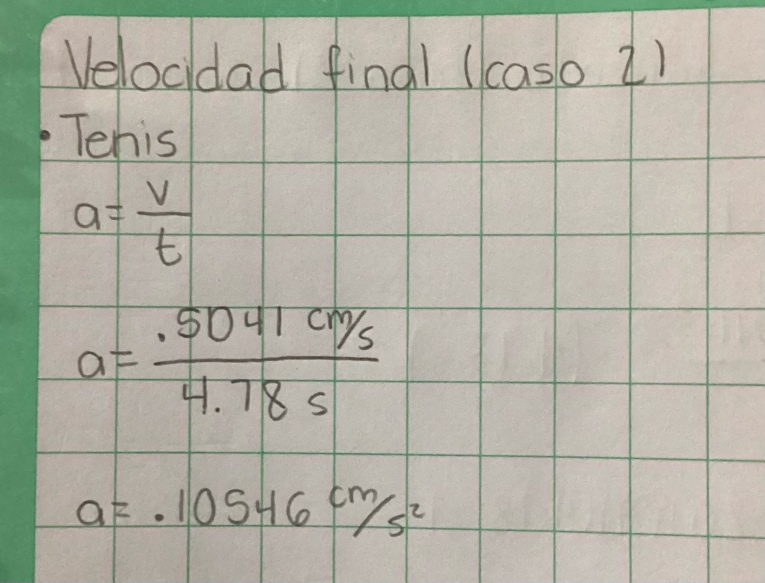 Velocidad final (caso 2)
• Tenis
a = v/t
a = .5041 cm/s / 4.78 s
a = .10546 cm/s²